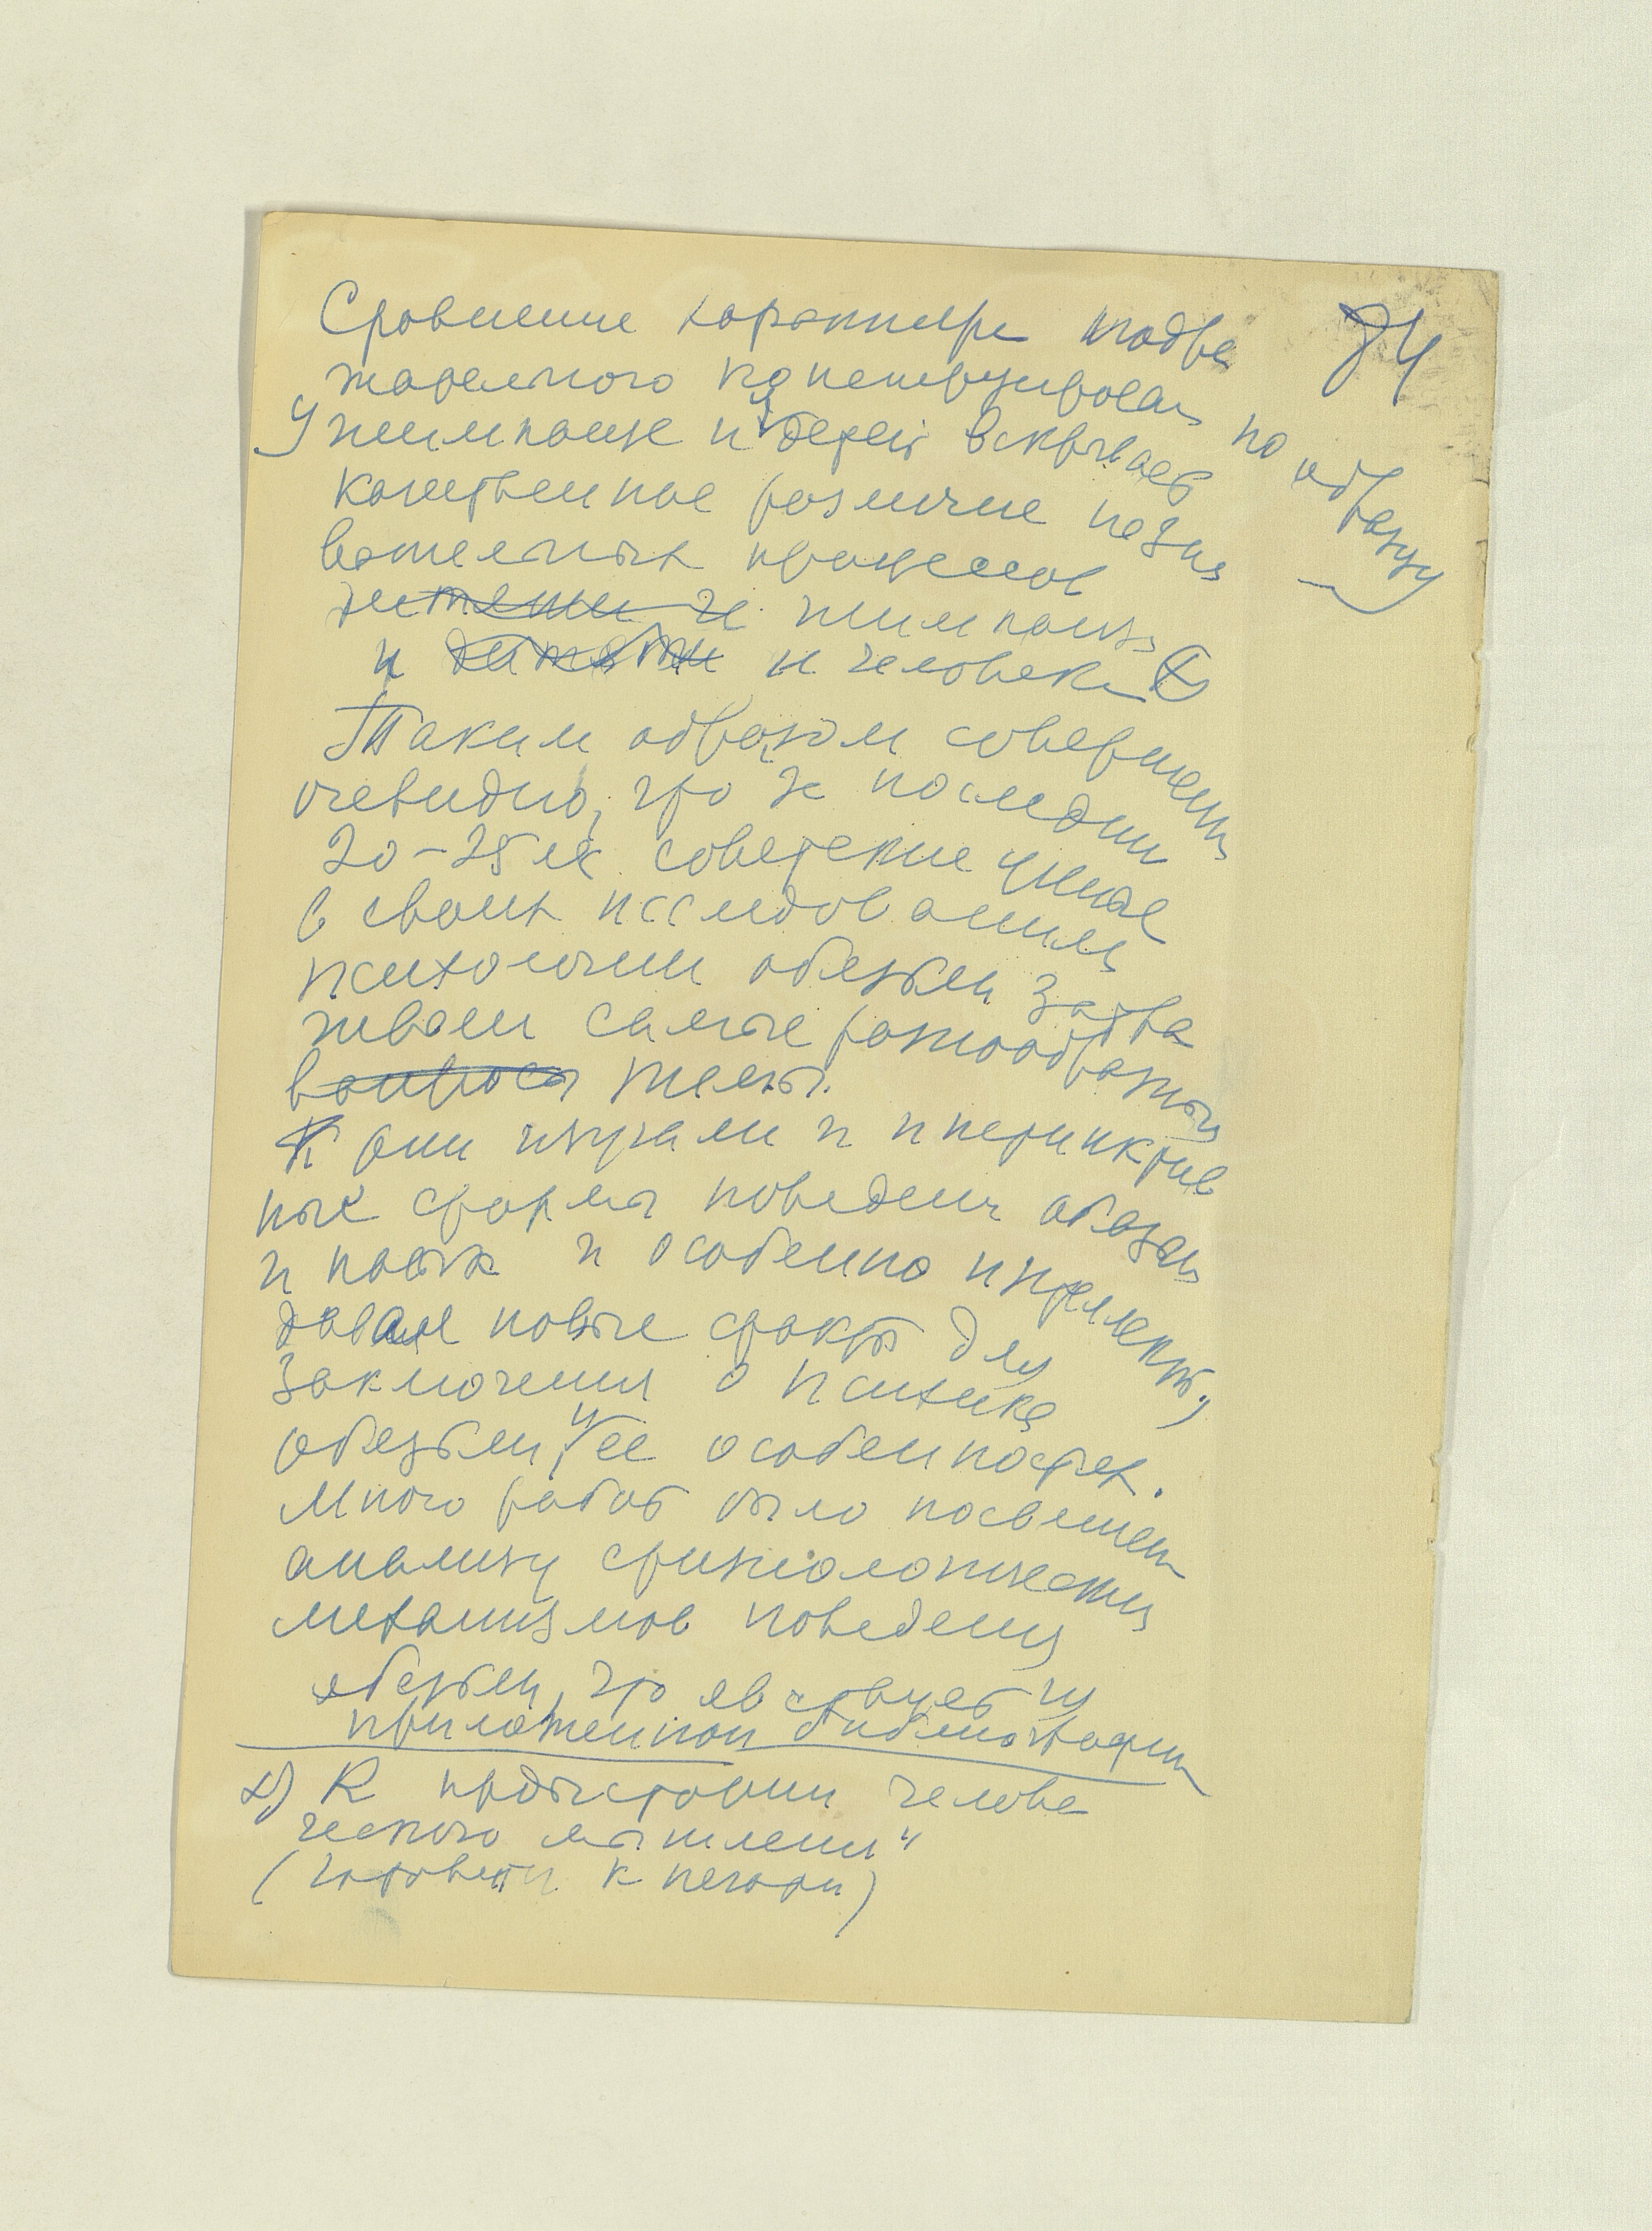 84
Сравнение характера подра
жательного конструирован по образу
у шимпанзе и у детей вскрывает
качественное различие позна
вательных процессов
шимпанзе
и и человека х)
Таким образом совершенн
очевидно, что за последни
20-25 лет советские ученые
в своих исследованиях
психологии обезьян затра
гивали самые разнообразны
вопросы темы.
они изучали и инстинктив
ные формы поведени обезьян
и навык и особенно интеллект,
давал новые факты для
заключения о психике
обезьян, и ее особенностях.
Много работ было посвящен
анализу физиологических
механизмов поведения
обезьян, что явствует из
приложенной библиографии
х) К предыстории челове
ческого мышления"
(готовится к печати)